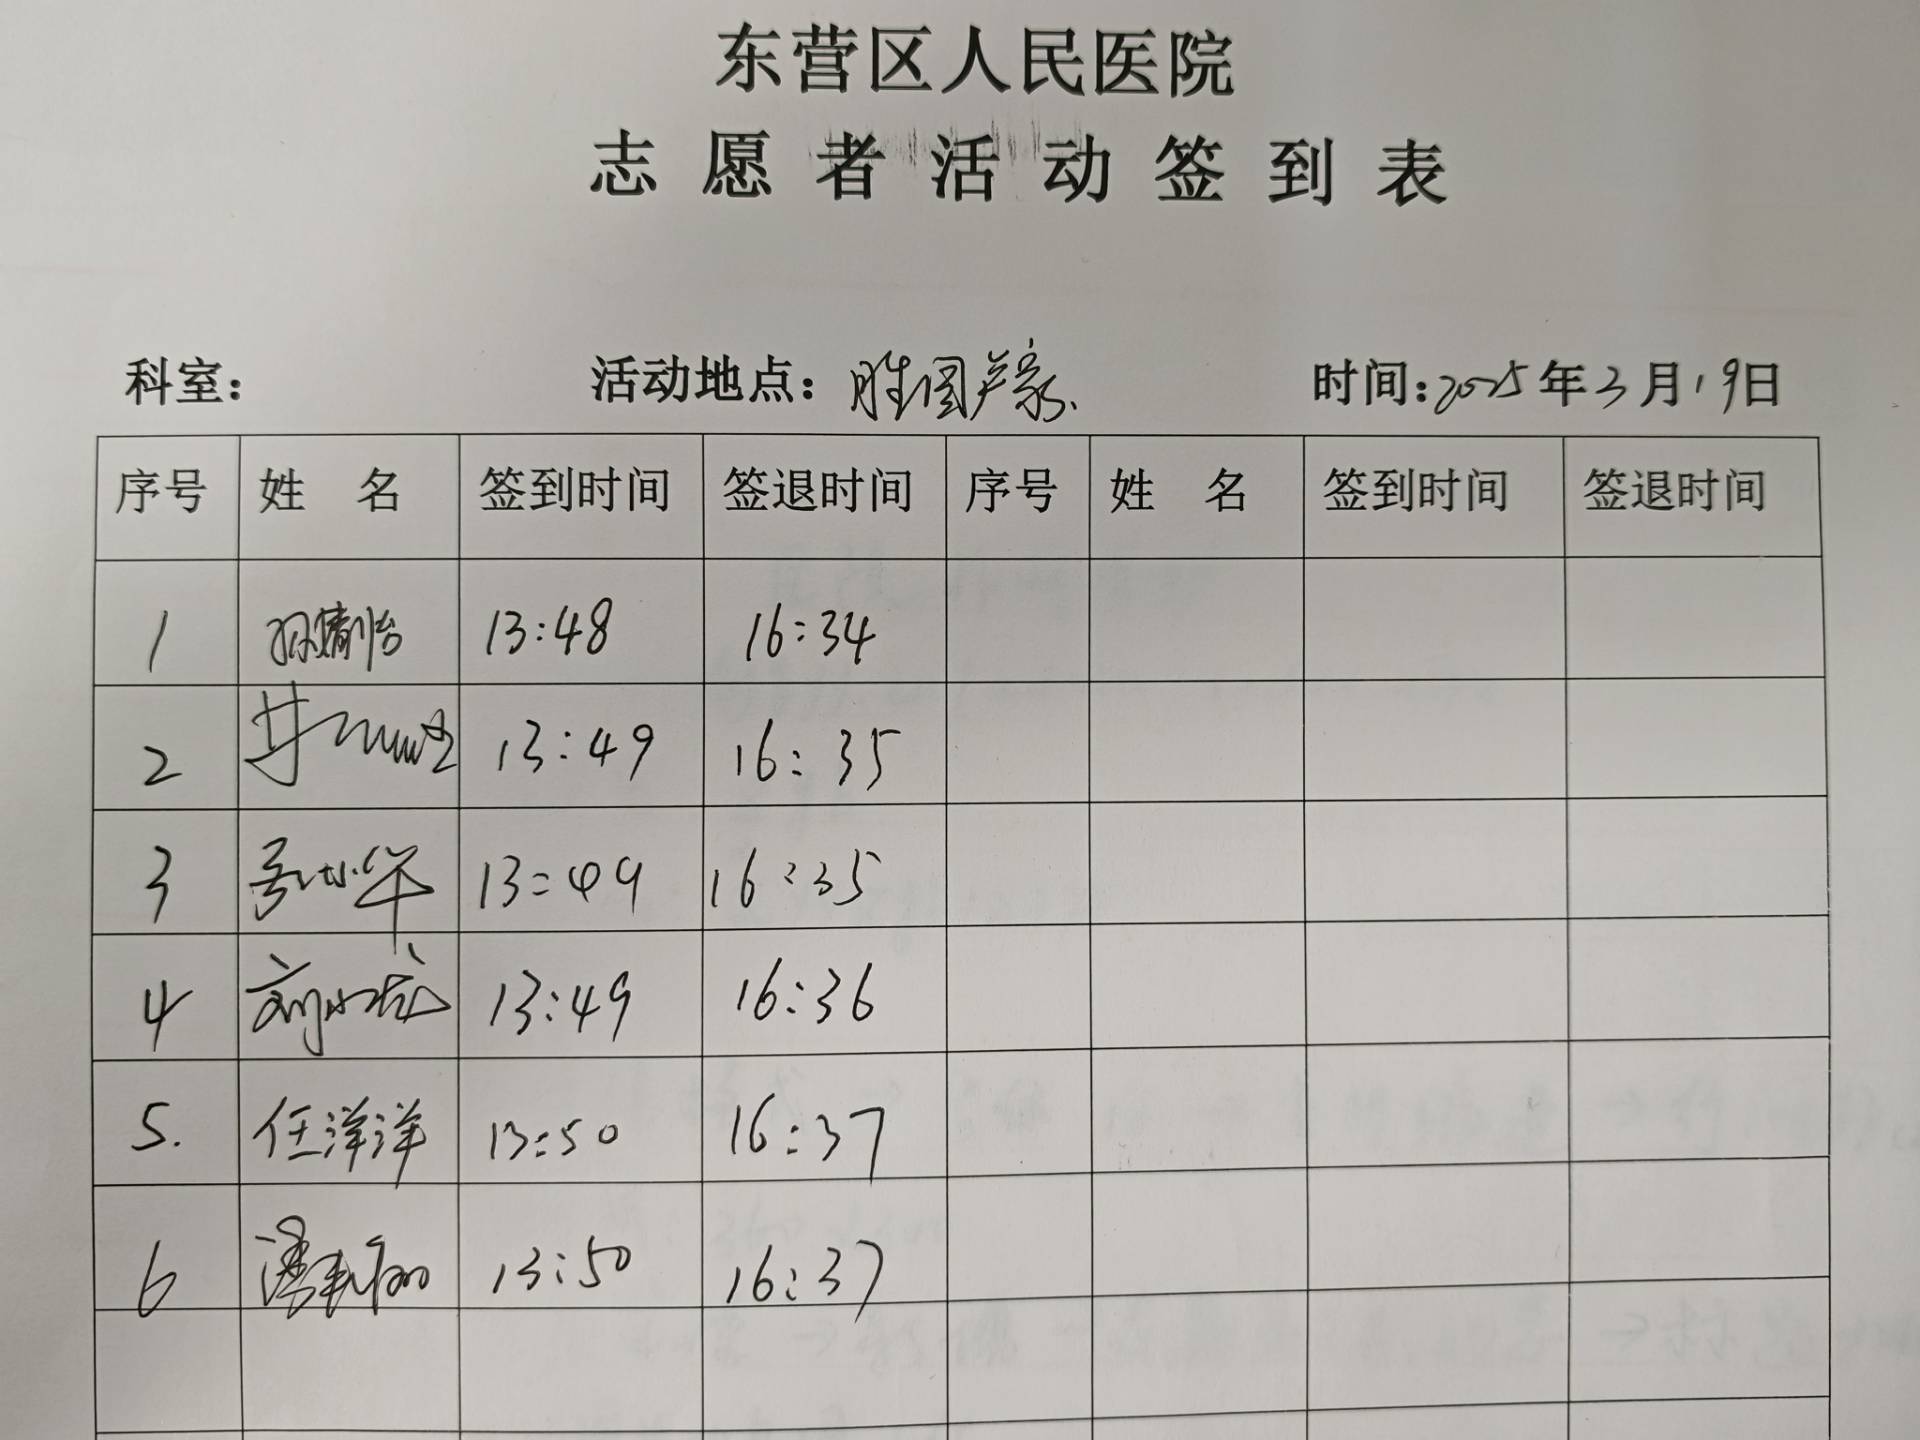 东营区人民医院
志愿者活动签到表
科室： 活动地点：胜园卢家 时间：2025年3月19日
序号 姓 名 签到时间 签退时间 序号 姓 名 签到时间 签退时间
1 孙婧怡 13:48 16:34
2 13:49 16:35
3 13:49 16:35
4 13:49 16:36
5. 任洋洋 13:50 16:37
6 13:50 16:37